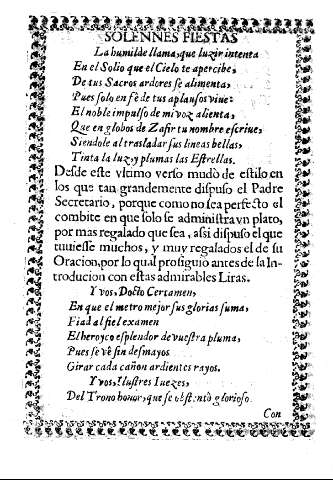 SOLENNES FIESTAS
La humilde llama, que luzir intenta
En el Solio que el Cielo te apercibe,
De tus Sacros ardores se alimenta,
Pues solo en fè de tus aplausos viue:
El noble impulso de mi voz alienta,
Que en globos de Zafir tu nombre escriue,
Siendole al trasladar sus lineas bellas,
Tinta la luz, y plumas las Estrellas.
Desde este vltimo verso mudò de estilo en
los que tan grandemente dispuso el Padre
Secretario, porque como no sea perfecto el
combite en que solo se administra vn plato,
por mas regalado que sea, assi dispuso el que
tuuiesse muchos, y muy regalados el de su
Oracion, por lo qual prosiguio antes de la In-
troducion con estas admirables Liras.
Y vos, Docto Certamen,
En que el metro mejor sus glorias suma,
Fiad al fiel examen
El heroyco esplendor de vuestra pluma,
Pues se vè sin desmayos
Girar cada cañon ardientes rayos.
Y vos, Ilustres Iuezes,
Del Trono honor, que se ostentò glorioso.
Con